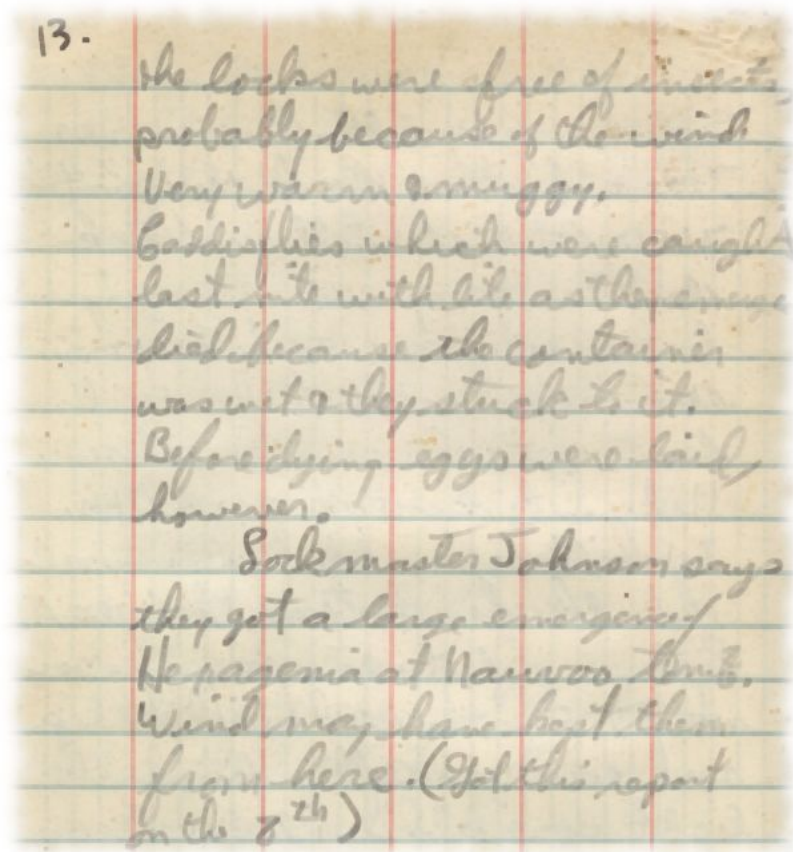 13.
the locks were free of insects,
probably because of the wind
Very warm & muggy.
Caddisflies which were caught
last nite with lite as they emerge
died because the container
was wet & they stuck to it.
Before dying eggs were laid,
however.
Lockmaster Johnson says
they got a large emergence of
Hexagenia at Nauvoo
Wind may have kept them
from here. (Got this report
on the 8th)